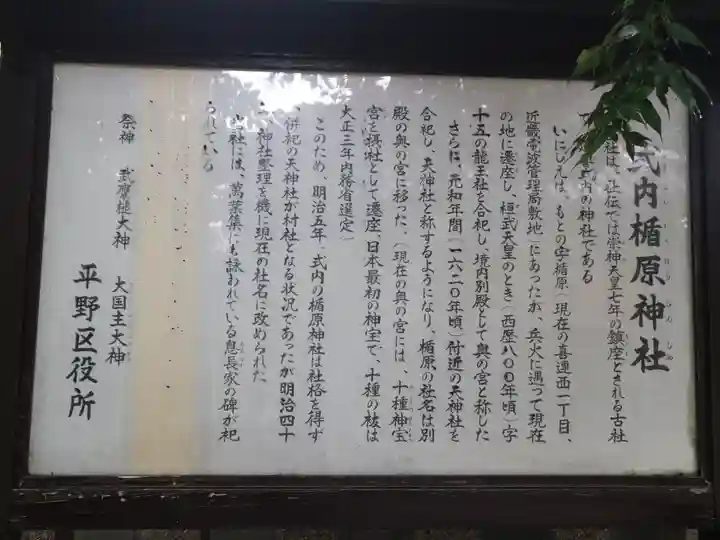 式内楯原神社
社は、社伝では崇神天皇七年の鎮座とされる古社
式内の神社である
いにしえは、もとの字楯原(現在の喜連西一丁目、
近畿電波管理局敷地)にあったが、兵火に遇って現在
の地に遷座し、桓武天皇のとき(西歴八〇〇年頃)字
十五の龍王社を合祀し、境内別殿として奥の宮と称した
さらに、元和年間(一六二〇年頃)付近の天神社を
合祀し、天神社と称するようになり、楯原の社名は別
殿の奥の宮に移った、(現在の奥の宮には、十種神宝
宮を摂社として遷座、日本最初の神宝で、十種の祓は
大正三年内務省選定)
このため、明治五年、式内の楯原神社は社格を得ず
、併祀の天神社が村社となる状況であったが明治四十
、神社整理を機に現在の社名に改められた
社には、萬葉集にも詠われている息長家の碑が祀
られている
祭神 武甕槌大神 大国主大神
平野区役所